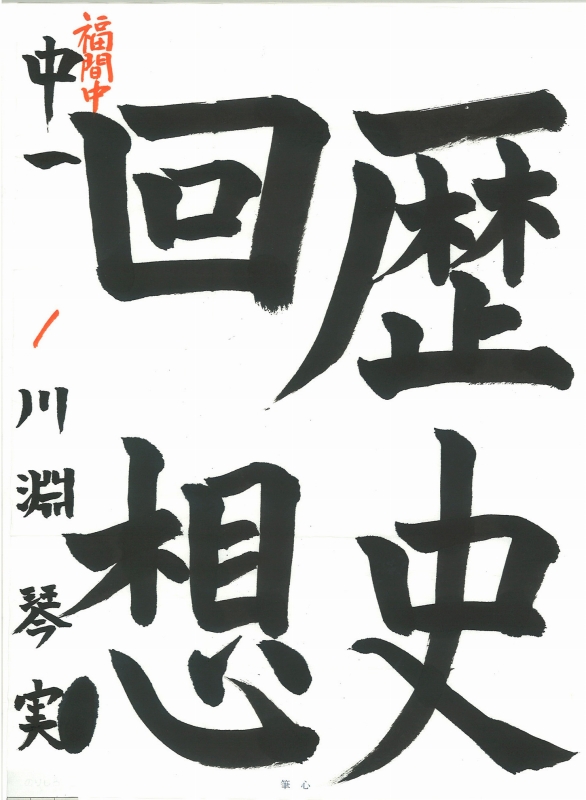 歴史
回想
福間中
中一
川淵琴実
筆心